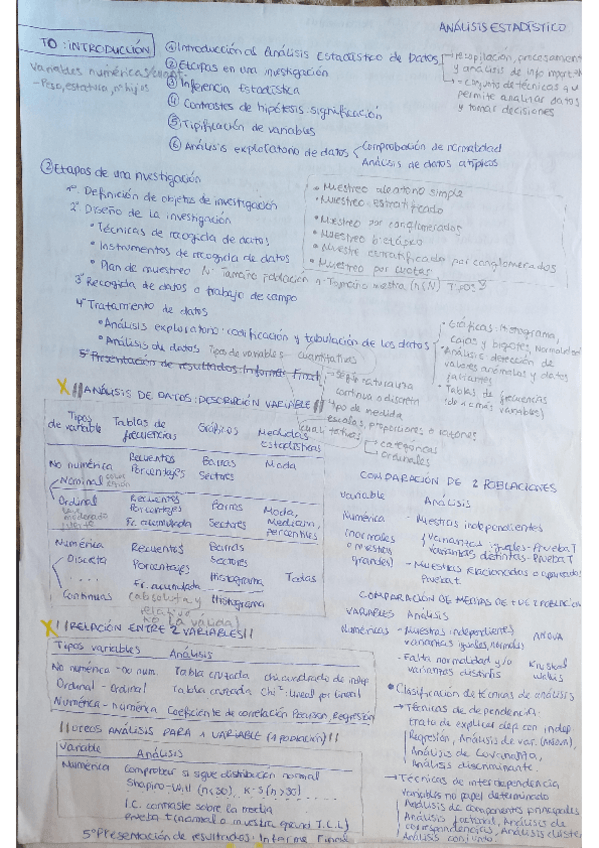 ANÁLISIS ESTADÍSTICO
TO: INTRODUCCIÓN
Variables numéricas/cuant.
- Peso, estatura, nº hijos
① Introducción al Análisis Estadístico de Datos
→ recopilación, procesamient
y análisis de info
→ conjunto de técnicas que
permite analizar datos
y tomar decisiones
② Etapas en una investigación
③ Inferencia Estadística
④ Contrastes de hipótesis: significación
⑤ Tipificación de variables
⑥ Análisis exploratorio de datos
Comprobación de normalidad
Análisis de datos atípicos
② Etapas de una investigación
1º Definición de objeto de investigación
2º Diseño de la investigación
• Técnicas de recogida de datos
• Instrumentos de recogida de datos
• Plan de muestreo N: Tamaño población n: Tamaño muestra (n<N) Tipos
• Muestreo aleatorio simple
• Muestreo estratificado
• Muestreo por conglomerados
• Muestreo bietápico
• Muestre estratificado por conglomerados
• Muestreo por cuotas
3º Recogida de datos o trabajo de campo
4º Tratamiento de datos
• Análisis exploratorio: codificación y tabulación de los datos
• Gráficas: Histograma,
cajas y bigotes, Normalidad
• Análisis detección de
valores anómalos y datos
faltantes
• Tablas de frecuencias
(de 1 o más variables)
• Análisis de datos Tipos de variables cuantitativas
→ según naturaleza
continua o discreta
tipo de medida
escalas, proporciones o razones
cualitativas
→ categóricas
ordinales
5º Presentación de resultados: Informe Final
X ||ANÁLISIS DE DATOS: DESCRIPCIÓN VARIABLE||
Tipos de variable Tablas de frecuencias Gráficos Medidas Estadísticas
No numérica Recuentos Barras Moda
Nominal Porcentajes Sectores
Ordinal Recuentos Barras Moda,
Porcentajes Sectores Mediana,
Fr. acumulada percentiles
Numérica Recuentos Barras
Discreta Porcentajes Sectores
Fr. acumulada Histograma Todas
Continuas (absoluta y Histograma
relativa
no la válida)
X ||RELACIÓN ENTRE 2 VARIABLES||
Tipos variables Análisis
No numérica - No num. Tabla cruzada chi cuadrado de indep
Ordinal - Ordinal Tabla cruzada Chi²: lineal por lineal
Numérica - numérica Coeficiente de correlación Pearson, Regresión
||OTROS ANÁLISIS PARA 1 VARIABLE (1 POBLACIÓN)||
Variable Análisis
Numérica Comprobar si sigue distribución normal
Shapiro-Will (n<30), K-S (n>30)
I.C. contraste sobre la media
prueba t (normal o muestra grand T.C.L)
5º Presentación de resultados: Informe Final
COMPARACIÓN DE 2 POBLACIONES
Variable Análisis
Numérica - Muestras independientes
(normales varianzas iguales - Prueba T
o muestras varianzas distintas - Prueba T
grandes) - Muestras relacionadas o apareadas
Prueba t
COMPARACIÓN DE MEDIAS DE + DE 2 POBLACION
VARIABLES Análisis
Numéricas - Muestras independientes ANOVA
varianzas iguales, normales
- Falta normalidad y/o Kruskal
varianzas distintas Wallis
• Clasificación de técnicas de análisis
→ Técnicas de dependencia:
trata de explicar dep con indep
Regresión, Análisis de var. (ANOVA),
Análisis de Covarianza,
Análisis discriminante.
→ Técnicas de interdependencia
variables no papel determinado
Análisis de componentes principales
Análisis factorial, Análisis de
correspondencias, Análisis cluster
Análisis conjunto.